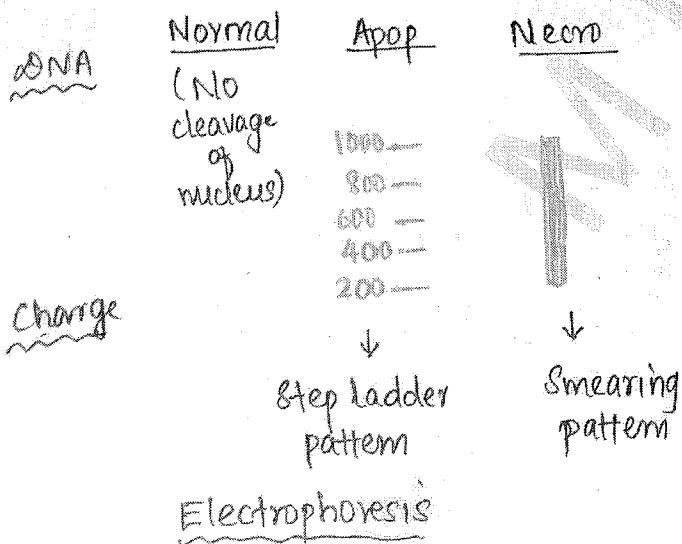 Normal Apop Necro
DNA
(No
cleavage
of
nucleus)
1000
800
600
400
200
Charge
↓ ↓
Step ladder
pattern
Smearing
pattern
Electrophoresis